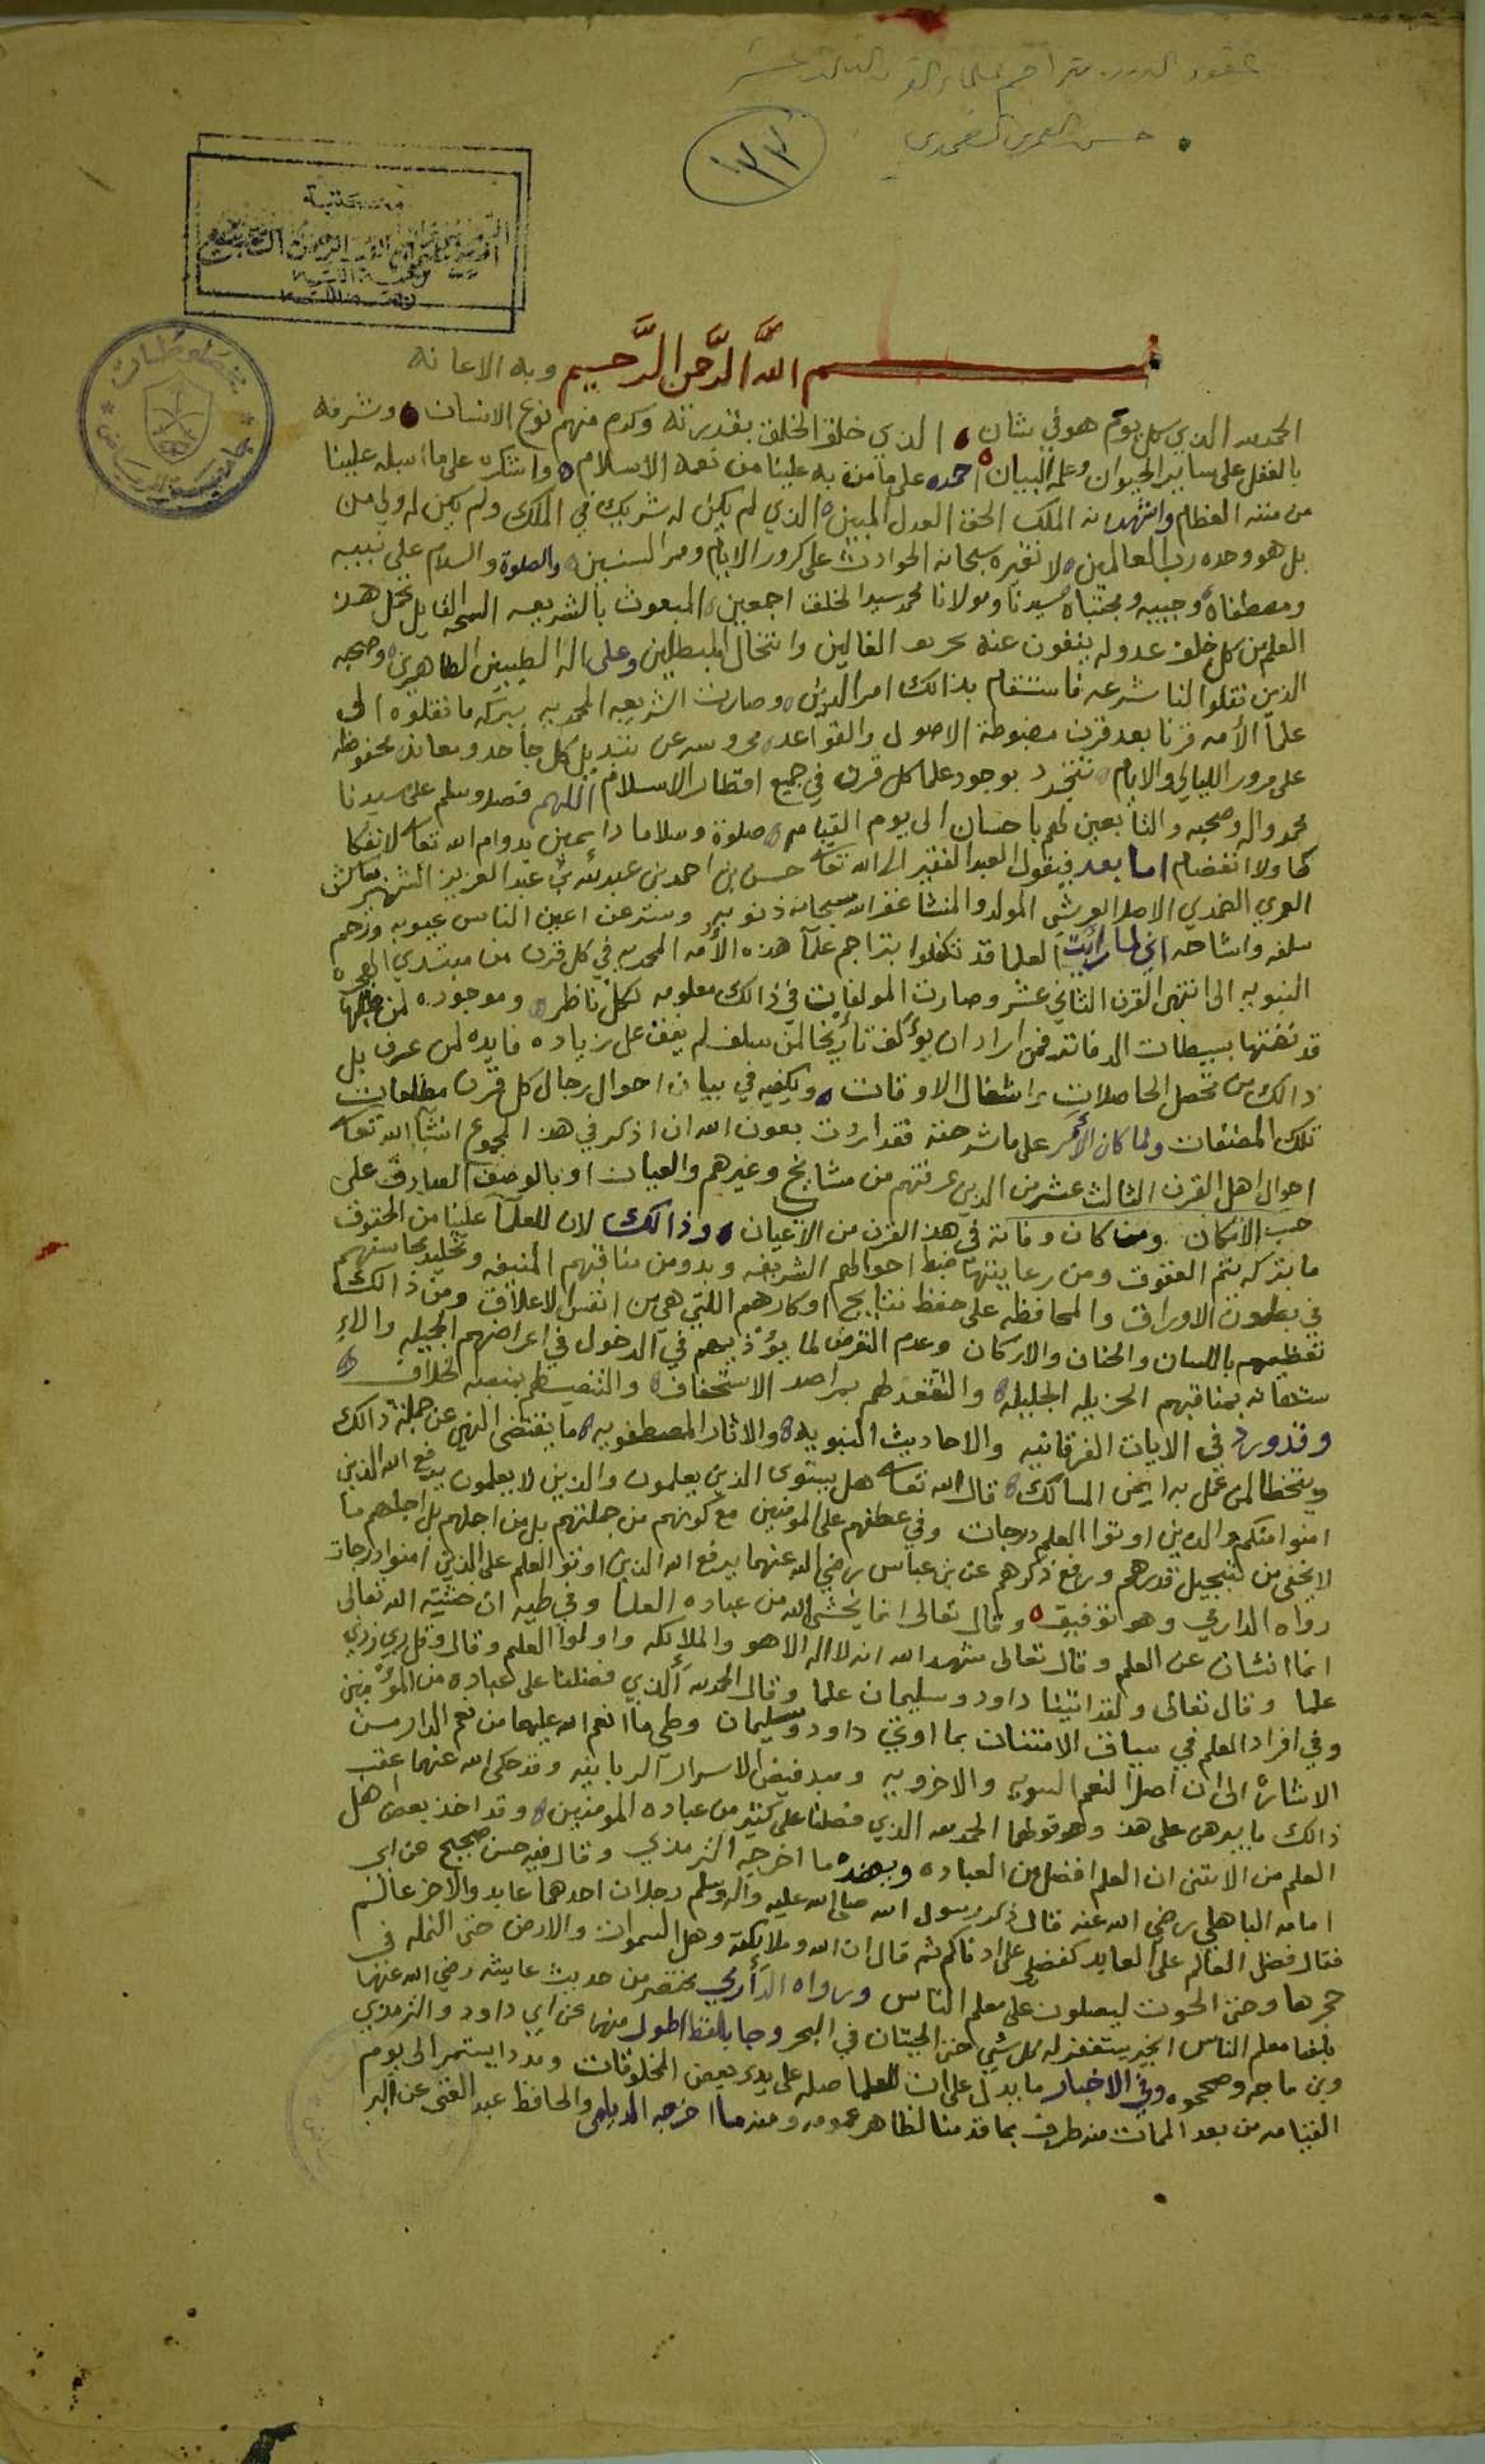 عقود الدرر بتراجم علماء القرن الثالث عشر
حسن الضمدي
١٣٣
مكتبة
مخطوطات
جامعة الرياض
بسم الله الرَّحمن الرَّحيم وبه الاعانه
الحمدلله الذي كل يوم هو في شان الذي خلق الخلق بقدرته وكرم منهم نوع الانسان وشرفه
بالعقل على ساير الحيوان وعلمه البيان احمده على ما من به علينا من نعمة الاسلام واشكره على ما اسبله علينا
من مننه العظام واشهد انه الملك الحق العدل المبين الذي لم يكن له شريك في الملك ولم يكن له ولي من
بل هو وحده رب العالمين لا تغيره سبحانه الحوادث على كرور الايام ومر السنين والصلوة والسلام على نبيه
ومصطفاه وحبيبه ومجتباه سيدنا ومولانا محمد سيد الخلق اجمعين المبعوث بالشريعه السمحه القايل يحمل هذ
العلم من كل خلف عدوله ينفون عنه تحريف الغالين وانتحال المبطلين وعلى اله الطيبين الطاهرين وصحبه
الذين نقلوا لنا شرعه فاستقام بذالك امر الدين وصارت الشريعه المحمديه ببركه ما نقلوه الى
علمآ الأمه قرنا بعد قرن مضبوطة الاصول والقواعد محروسه عن تبديل كل جاحد ومعاند محفوظة
على مرور الليالي والايام تتجدد بوجود علما كل قرن في جميع اقطار الاسلام اللهم فصل وسلم على سيدنا
محمد واله وصحبه والتابعين لهم باحسان الى يوم القيامه صلوة وسلاما دايمين بدوام الله تعا لا نفكا
كا ولا انفصام اما بعد فيقول العبد الفقير الى الله تعا حسن بن احمد بن عبدالله بن عبد العزيز الشهير بعاكش
الضمدي الاصل العريشي المولد والمنشا غفر الله سبحانه ذنوبه وستر عن اعين الناس عيوبه ورحم
سلفه واشاخه اني لما رايت العلما قد تكفلوا بتراجم علمآ هذه الأمه المحمديه في كل قرن من مبتدي الهجره
النبويه الى انتهى القرن الثاني عشر وصارت المولفات في ذالك معلومه لكل ناظر وموجوده لمن طلبها
قد تضمنتها بسيطات الدفاتر فمن اراد ان يؤلف تأريخا لمن سلف لم يقف على زياده فايده لمن عرف بل
ذالك من تحصل الحاصلات واشغال الاوقات ويكفيه في بيان احوال رجال كل قرن مطالعات
تلك المصنفات ولما كان الأمر على ما شرحته فقد اردت بعون الله ان اذكر في هذ المجموع انشآ الله تعا
احوال اهل القرن الثالث عشر من الذين عرفتهم من مشايخ وغيرهم والعيان او بالوصف الصادق على
حسب الامكان ومن كان وفاته في هذ القرن من الأعيان وذالك لان للعلمآ علينا من الحقوق
ما بتركه يتم العقوق ومن رعايتها ضبط احوالهم الشريفه وبدو من مناقبهم المنيفه وتخليد محاسنهم
في بطون الاوراق والمحافظه على حفظ نتايج افكارهم اللتي هي من انفس لاعلاق ومن ذالك
تعظيمهم باللسان والجنان والاركان وعدم التعرض لما يؤذيهم في الدخول في اعراضهم الجميله والاء
ستخفاف بمناقبهم الجزيله الجليله والتقعد لهم بمراصد الاستخفاف والتنصب لهم بمنصة الخلاف
وقد ورد في الايات الفرقانيه والاحاديث النبويه والاثار المصطفويه ما يقتضى النهي عن جملة ذالك
ويتخطا لمن عمل به ايمن المسالك قال الله تعا هل يستوى الذين يعلمون والذين لا يعلمون يرفع الله الذين
امنوا منكم والذين اوتوا العلم درجات وفي عطفهم على المومنين مع كونهم من جملتهم بل من اجلهم بل اجلهم ما
لا يخفى من تبجيل قدرهم ورفع ذكرهم عن بن عباس رضي الله عنهما يرفع الله الذين اوتوا العلم على الذين امنوا درجات
رواه الدارمي وهو توفيق وقال تعالى انما يخشى الله من عباده العلما وفي طيه ان خشية الله تعالى
انما انشات عن العلم وقال تعالى شهد الله انه لا اله الا هو والملايكه واولوا العلم وقال وقل رب زدني
علما وقال تعالى ولقد اتينا داود وسليمان علما وقالا الحمدلله الذي فضلنا على عباده من المؤمنين
وفي افراد العلم في سياق الامتنان بما اوتي داود وسليمان وطي ما انعم الله عليهما من نعم الدارين
الاشارة الى ان اصل النعم النبويه والاخرويه ومبد فيض الاسرار الربانيه وقد حكى الله عنهما عقب
ذالك ما يبرهن على هذ وهو قولهما الحمد لله الذي فضلنا على كثير من عباده المومنين وقد اخذ بعض اهل
العلم من الايتين ان العلم افضل من العباده وبعضده ما اخرجه الترمذي وقال فيه حسن صحيح عن ابي
امامه الباهلي رضي الله عنه قال ذكر رسول الله صلى الله عليه واله وسلم رجلان احدهما عابد والاخر عالم
فقال فضل العالم على العابد كفضلي على ادناكم ثم قال ان الله وملايكته وهل السموات والارض حتى النمله في
جحرها وحتى الحوت ليصلون على معلم الناس ورواه الدارمي مختصر من حديث عايشه رضي الله عنها
بلفظ معلم الناس الخير يستغفر له كل شي حتى الحيتان في البحر وجا بلفظ اطول منهما عن ابي داود والترمذي
وبن ماجه وصححوه وفي الاخبار ما يدل على ان للعلما صله على يدي بعض المخلوقات ومددا يستمر الى يوم
القيامه من بعد الممات منه طرف بما قدمنا لظاهر عمومه ومنه ما اخرجه الديلمي والحافظ عبد الغنى عن البر